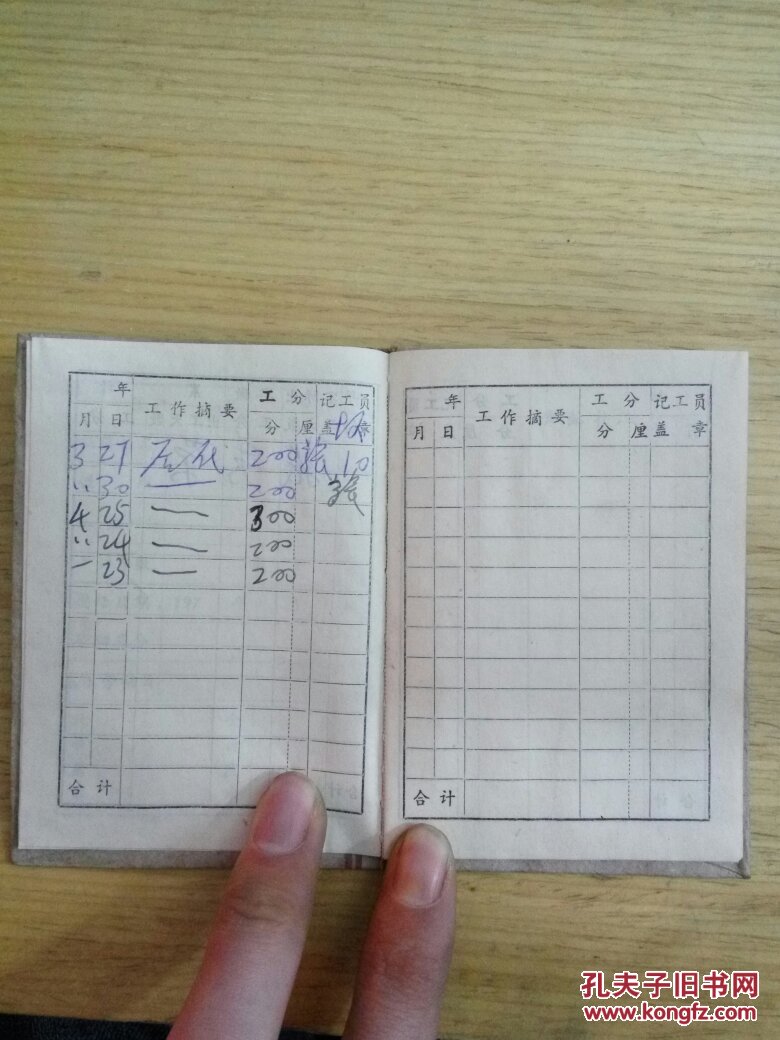 年 工作摘要 工分 记工员
月 日 分 厘 盖章
3 27 200 张 10
〃 30 —— 200 张
4 25 — 300
〃 24 — 200
— 23 — 200
合计
年 工作摘要 工分 记工员
月 日 分 厘 盖章
合计
孔夫子旧书网
www.kongfz.com